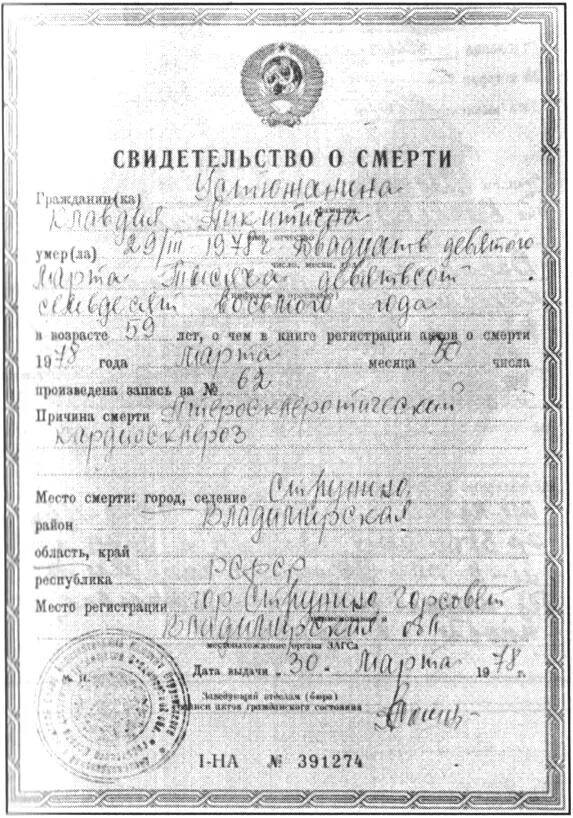 СВИДЕТЕЛЬСТВО О СМЕРТИ
Гражданин(ка) Устюжанина
Клавдия Никитична
умер(ла) 29/III 1978 г двадцать девятого
число, месяц,
марта тысяча девятьсот
семьдесят восьмого года
в возрасте 59 лет, о чем в книге регистрации актов о смерти
1978 года марта месяца 30 числа
произведена запись за № 62
Причина смерти Атеросклеротический
кардиосклероз
Место смерти: город, селение Струнино
район Владимирская
область, край
республика РСФСР
Место регистрации гор Струнино, горсовет
наименование и
Владимирская обл
местонахождение органа ЗАГСа
Дата выдачи „30" марта 1978 г.
М. П.
Заведующий отделом (бюро)
записи актов гражданского состояния
I-НА № 391274